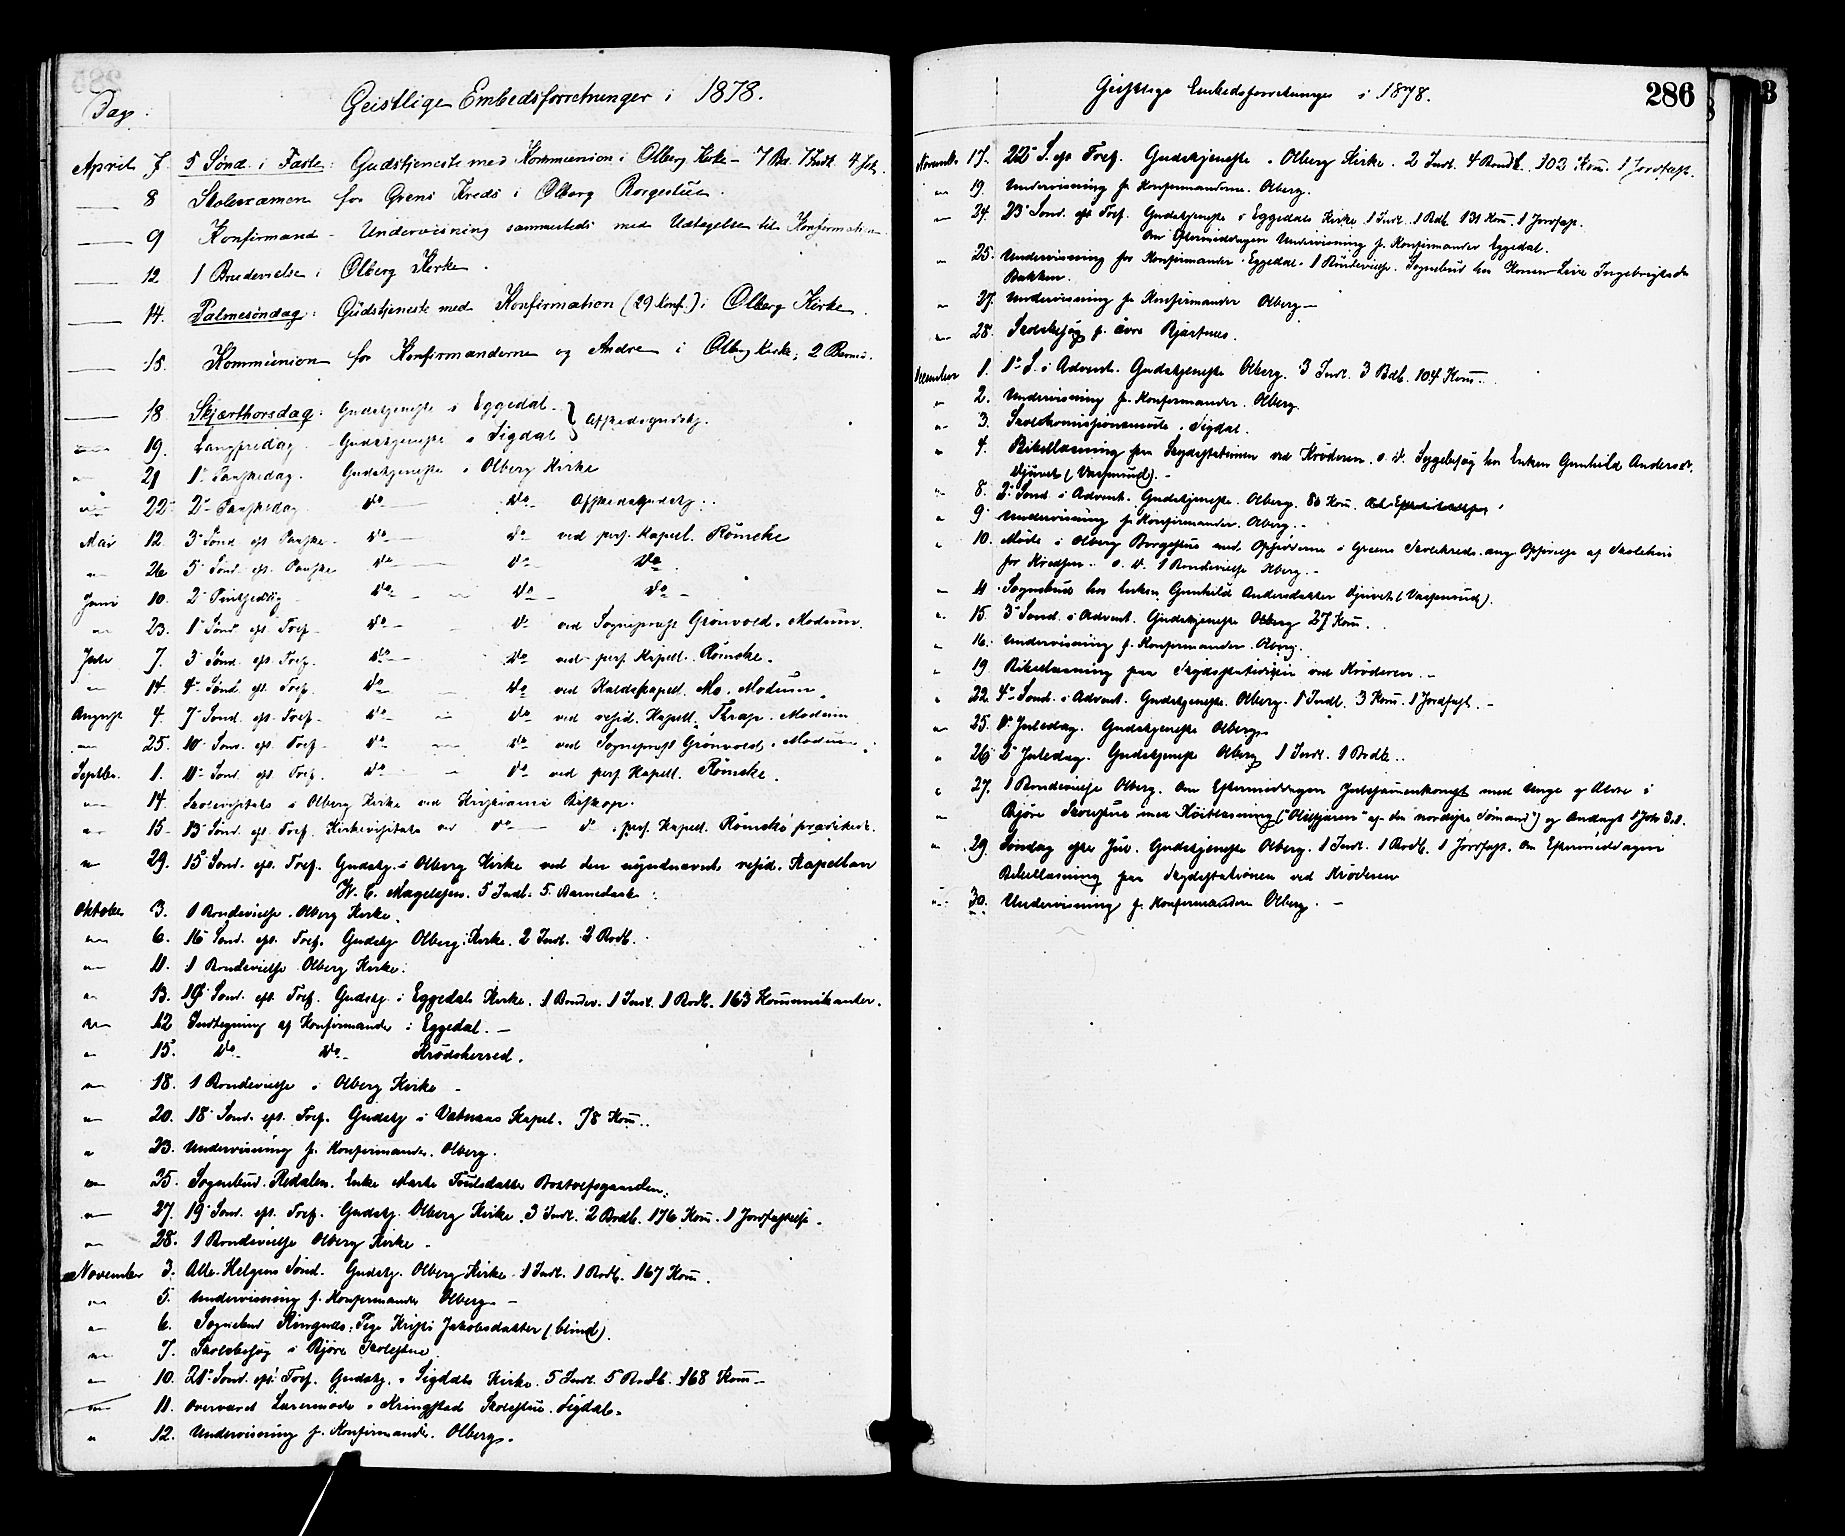 Geistlige Embedsforretninger i 1878.
Dag.
April 7. 5 Sønd. i Faste: Gudstjeneste med Kommunion i Olberg Kirke – 7 Bd. 7 Indl. 4 Jf.
8 Skolexamen for Grens Kreds i Olberg Borgestue.
9 Konfirmand-Undervisning sammesteds med Udtagelse til Konfirmation
12 1 Brudevielse i Olberg Kirke.
14. Palmesøndag: Gudstjeneste med Konfirmation (29 Konf.) i Olberg Kirke.
15. Kommunion for Konfirmanderne og Andre i Olberg Kirke; 2 Barned.
18. Skjærthorsdag: Gudstjeneste i Eggedal. } Afskedsgudstj.
19. Langfredag. Gudstjeneste i Sigdal
21 1ste Paaskedag. Gudstjeneste i Olberg Kirke
22. 2den Paaskedag. do do Afskedsgudstj.
Mai 12. 3 Sønd. eft. Paaske. do do ved pers. Kapell. Rømcke
26 5 Sønd. eft. Paaske do do do
Juni 10. 2 Pintsedag do do do
23. 1 Sønd. eft. Tref. do do ved Sogneprest Grønvold, Modum.
Juli 7. 3 Sønd. eft. Tref. do do ved pers. Kapell. Rømcke.
14. 4 Sønd. eft. Tref. do do ved Kaldskapell. Mo. Modum.
August 4. 7 Sønd. eft. Tref. do do ved resid. Kapell. Thrap. Modum
25. 10 Sønd. eft. Tref. do do ved Sogneprest Grønvold, Modum.
Septbr. 1. 11 Sønd. eft. Tref. do do ved pers. Kapell. Rømcke.
14. Skolevisitats i Olberg Kirke ved Kristiania Biskop.
15. 13 Sønd. eft. Tref. Kirkevisitats ved do do, pers. Kapell. Rømcke prædikede.
29. 15 Sønd. eft. Tref. Gudstj. i Olberg Kirke ved den nyudnævnte resid. Kapellan
W. C. Magelssen. 5 Indl. 5 Barnedaab.
Oktober 3. 1 Brudevielse. Olberg Kirke.
6. 16 Sønd. eft. Tref. Gudstj. Olberg Kirke. 2 Indl. 2 Brdb.
11. 1 Brudevielse Olberg Kirke.
13. 19 Sønd. eft. Tref. Gudstj. i Eggedals Kirke. 1 Brudev. 1 Indl. 1 Brdb. 163 Kommunikanter.
12 Indtegning af Konfirmander i Eggedal. –
15. do do Krødsherred.
18. 1 Brudevielse i Olberg Kirke –
20. 18 Sønd. eft. Tref. Gudstj i Vatnaas Kapel. 78 Kom.
23. Undervisning f. Konfirmander. Olberg.
25. Sognebud. Redalen. Enke Marte Poulsdatter
27. 19 Sønd. eft. Tref. Gudstj. Olberg Kirke. 3 Indl. 2 Brdb. 176 Kom. 1 Jordfæstelse.
28. 1 Brudevielse Olberg Kirke.
November 3. Alle Helgens Sønd. Gudstj. Olberg Kirke. 1 Indl. 1 Brdb. 167 Kom.
5. Undervisning f. Konfirmander Olberg –
6. Sognebud Ringnes: Pige Kristi Jakobsdatter (blind).
7. Skolebesøg i Bjøre Skolestue
10. 21 Sønd. eft. Tref. Gudstj. i Sigdals Kirke. 5 Indl. 5 Brdb. 168 Kom –
11. Overværet Læremøde i Kringstad Skolestue. Sigdal.
12. Undervisning f. Konfirmander. Olberg.
Geistlige Embedsforretninger i 1878.
286
Novemb. 17. 22 S. eft Tref. Gudstjeneste. Olberg Kirke. 2 Indl. 4 Brudb. 102 Kom. 1 Jordfæst.
19. Undervisning f. Konfirmanderne. Olberg.
24. 23 Sønd. eft Tref. Gudstjeneste i Eggedals Kirke 1 Indl. 1 Bdb. 131 Kom. 1 Jordfæst.
Om Eftermiddagen Undervisning f. Konfirmander Eggedal.
25. Undervisning for Konfirmander. Eggedal. 1 Brudevielse. Sognebud hos Konen Live Ingebrigtsdr
Bakken.
27. Undervisning f. Konfirmander Olberg –
28. Skolebesøg p. øvre Bjørtnes.
December 1. 1 S. i Advent. Gudstjeneste Olberg. 3 Indl. 3 Bdb. 104 Kom.
2. Undervisning f. Konfirmander. Olberg.
3. Skolekomissionsmøde. Sigdal.
4. Bibellæsning paa Skydsstationen ved Krøderen. s. D. Sygebesøg hos Enken Gunhild Andersdr.
Djuvet (Vasenrud). –
8. 2 Sønd. i Advent. Gudstjeneste. Olberg. 80 Kom.
9. Undervisning f. Konfirmander. Olberg. –
10. Møde i Olberg Borgestue med Opsidderne i Greens Skolekreds ang. Opførelse af Skolehus
for Kredsen. s. D. 1 Brudevielse Olberg. –
11. Sognebud hos Enken Gunhild Andersdatter Djuvet (Vasenrud).
15. 3 Sønd. i Advent. Gudstjeneste Olberg 27 Kom.
16. Undervisning f. Konfirmander. Olberg.
19 Bibellæsning paa Skydsstationen ved Krøderen. –
22. 4 Sønd. i Advent. Gudstjeneste. Olberg. 1 Indl. 3 Kom. 1 Jordfæst. –
25. 1 Juledag. Gudstjeneste Olberg.
26 2 Juledag. Gudstjeneste Olberg 1 Indl. 1 Brdb.
27. 1 Brudevielse Olberg. Om Eftermiddagen Julesammenkomst med Unge og Ældre i
Bjøre Skolestue med Høitlæsning og Andagt
29. Søndag efter Jul. Gudstjeneste Olberg. 1 Indl. 1 Brdb. 1 Jordfæst. Om Eftermiddagen
Bibellæsning paa Skydsstationen ved Krøderen
30. Undervisning f. Konfirmanderne Olberg. –